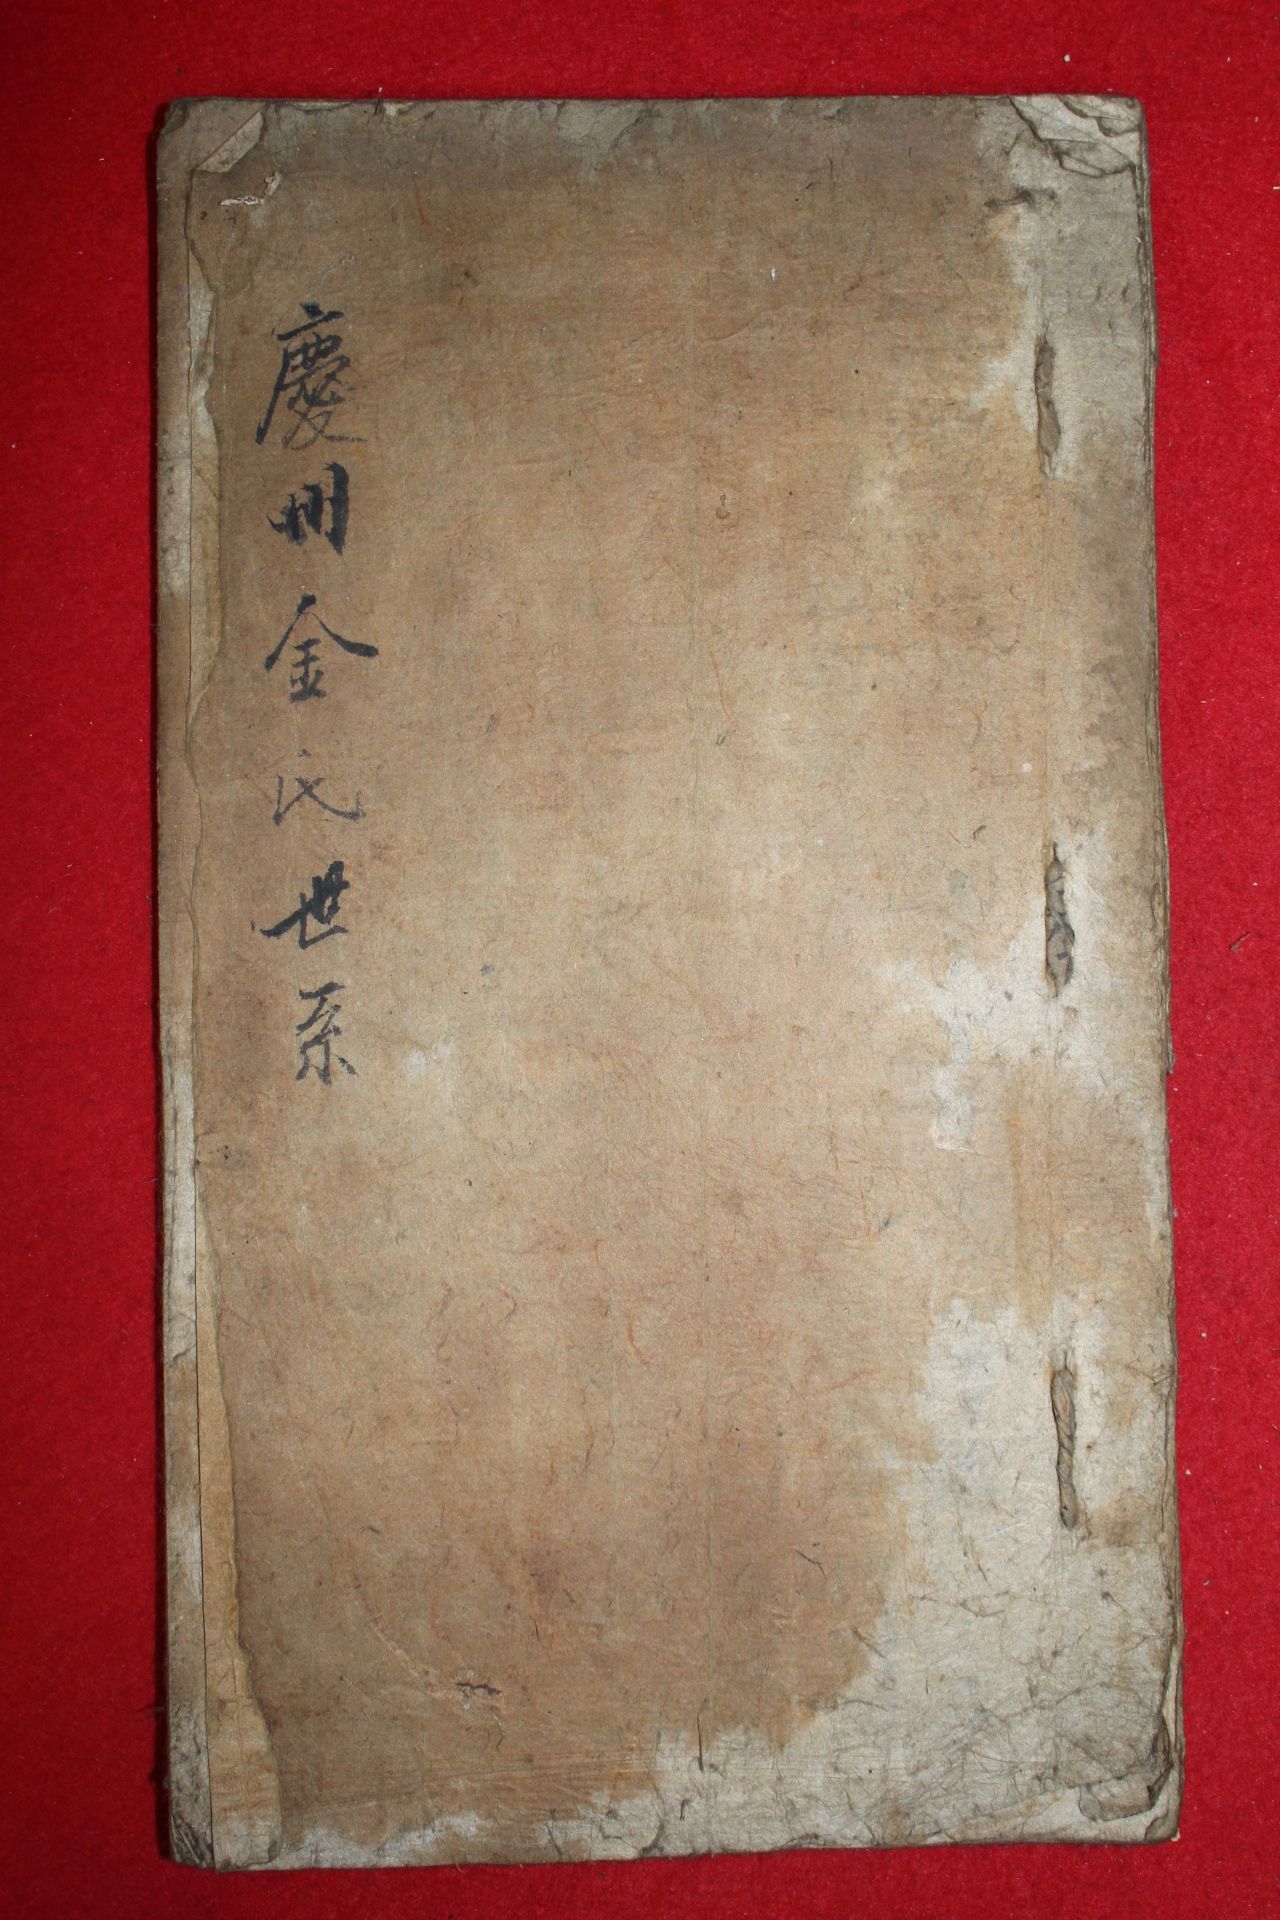 慶州金氏世系